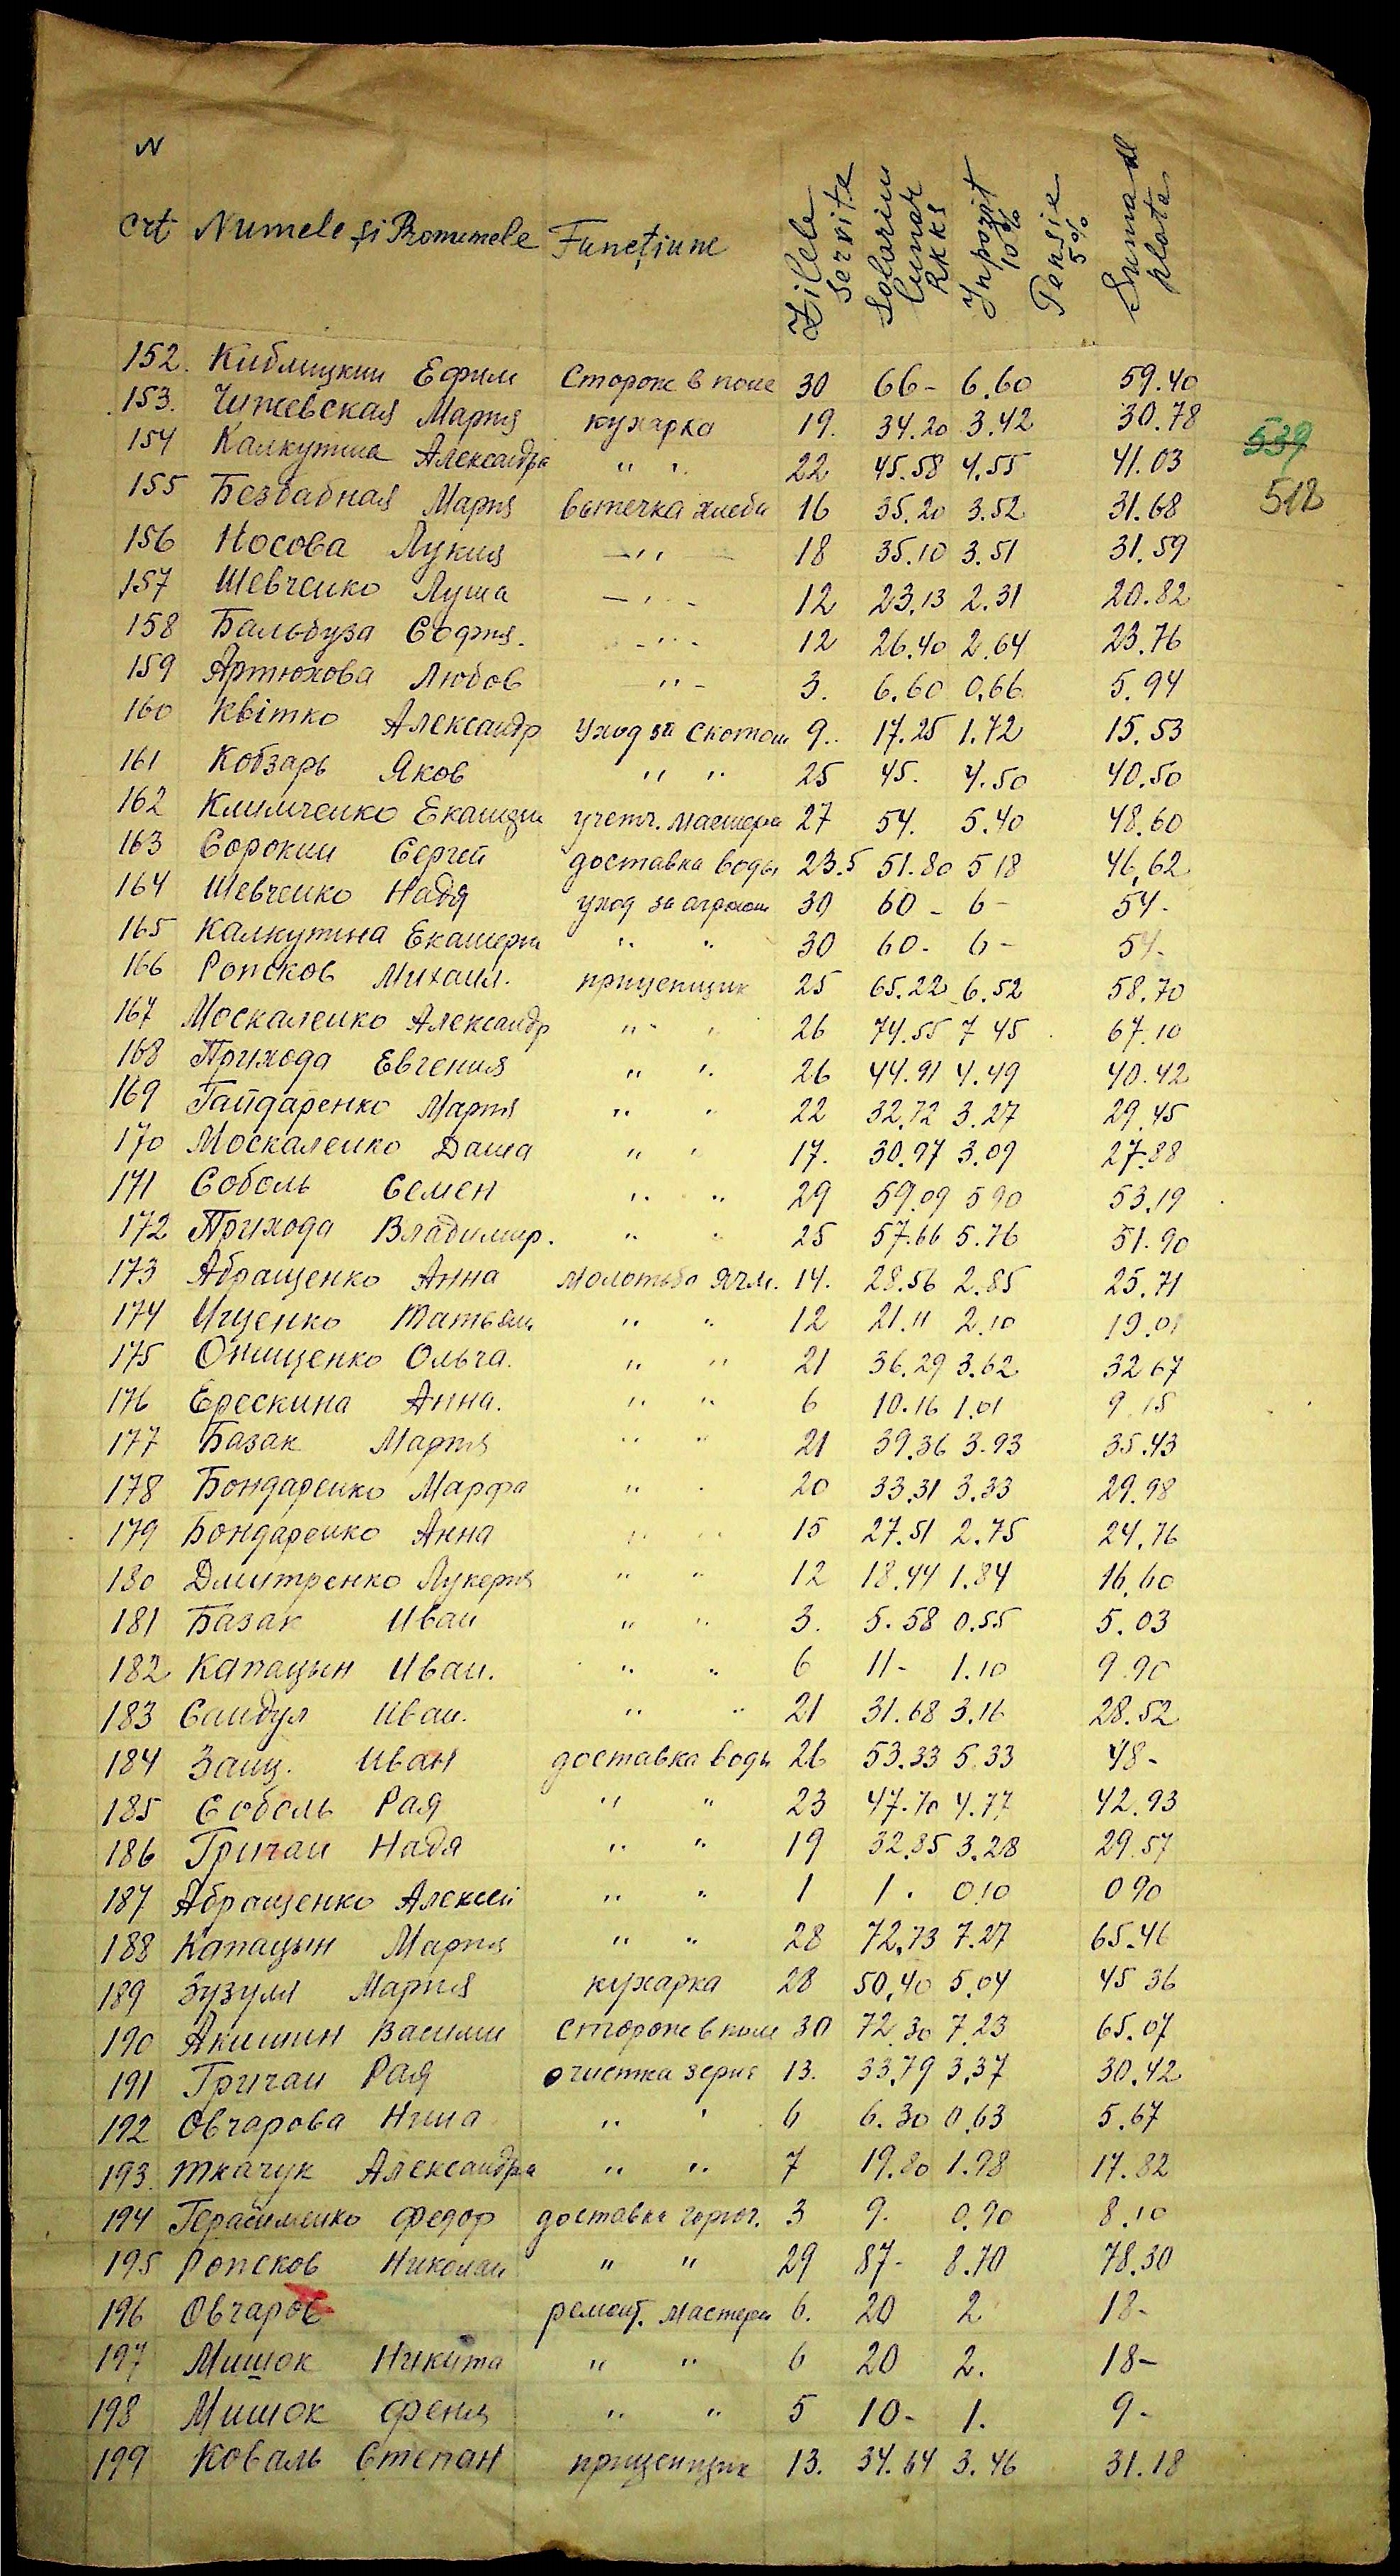 N
crt Numele și Pronumele Funcțiune Zilele servite Solariu lunar RKKS Inpozit 10% Pensie 5% Suma de plata
152. Киблицкий Ефим Сторож в поле 30 66- 6.60 59.40
153. Чужевская Мария кухарка 19. 34.20 3.42 30.78
539
154 Калкутина Александра " " 22 45.58 4.55 41.03
512
155 Беззабная Мария выпечка хлеба 16 35.20 3.52 31.68
156 Носова Лукия —"— 18 35.10 3.51 31.59
157 Шевченко Луша —"— 12 23.13 2.31 20.82
158 Бальбуза София. —"— 12 26.40 2.64 23.76
159 Артюхова Любов —"— 3. 6.60 0.66 5.94
160 Квітко Александр Уход за скотом 9. 17.25 1.72 15.53
161 Кобзарь Яков " " 25 45. 4.50 40.50
162 Климченко учетч. 27 54. 5.40 48.60
163 Сорокин Сергей доставка воды 23.5 51.80 5 18 46,62
164 Шевченко Надя уход за 30 60- 6- 54-
165 Калкутина " " 30 60- 6- 54-
166 Ропсков Михаил. прицепщик 25 65.22 6.52 58.70
167 Москаленко Александр " " 26 74.55 7 45 67.10
168 Прихода Евгения " " 26 44.91 4.49 40.42
169 Гайдаренко Мария " " 22 32.72 3.27 29.45
170 Москаленко Даша " " 17. 30.97 3.09 27.88
171 Соболь Семен " " 29 59.09 5 90 53.19
172 Прихода Владимир. " " 25 57.66 5.76 51.90
173 Абращенко Анна Молотьба ячм. 14. 28.56 2.85 25.71
174 Ищенко " " 12 21.11 2.10 19.01
175 Онищенко Ольга. " " 21 36.29 3.62 32 67
176 Ерескина Анна. " " 6 10.16 1.01 9.15
177 Базак Мария " " 21 39.36 3.93 35.43
178 Бондаренко Марфа " " 20 33.31 3.33 29.98
179 Бондаренко Анна " " 15 27.51 2.75 24.76
180 Дмитренко Лукерия " " 12 18.44 1.84 16.60
181 Базак Иван " " 3. 5.58 0.55 5.03
182 Капацын Иван. " " 6 11- 1.10 9.90
183 Сандул Иван. " " 21 31.68 3.16 28.52
184 Заяц. Иван доставка воды 26 53.33 5.33 48-
185 Соболь Рая " " 23 47.70 4.77 42.93
186 Гричан Надя " " 19 32.85 3.28 29.57
187 Абращенко Алексей " " 1 1. 0.10 0 90
188 Капацын Мария " " 28 72.73 7.27 65.46
189 Зузуля Мария кухарка 28 50.40 5.04 45 36
190 Акишин Василий Сторож в поле 30 72.30 7.23 65.07
191 Гричан Рая очистка зерна 13. 33.79 3.37 30.42
192 Овчарова Нина " " 6 6.30 0.63 5.67
193. Ткачук Александра " " 7 19.80 1.98 17.82
194 Герасименко Федор доставка горюч. 3 9. 0.90 8.10
195 Ропсков Николай " " 29 87- 8.70 78.30
196 Овчаров ремонт. мастерск 6. 20 2 18-
197 Мишок Никита " " 6 20 2. 18-
198 Мишок Феня " " 5 10- 1. 9-
199 Коваль Степан прицепщик 13. 34.64 3.46 31.18